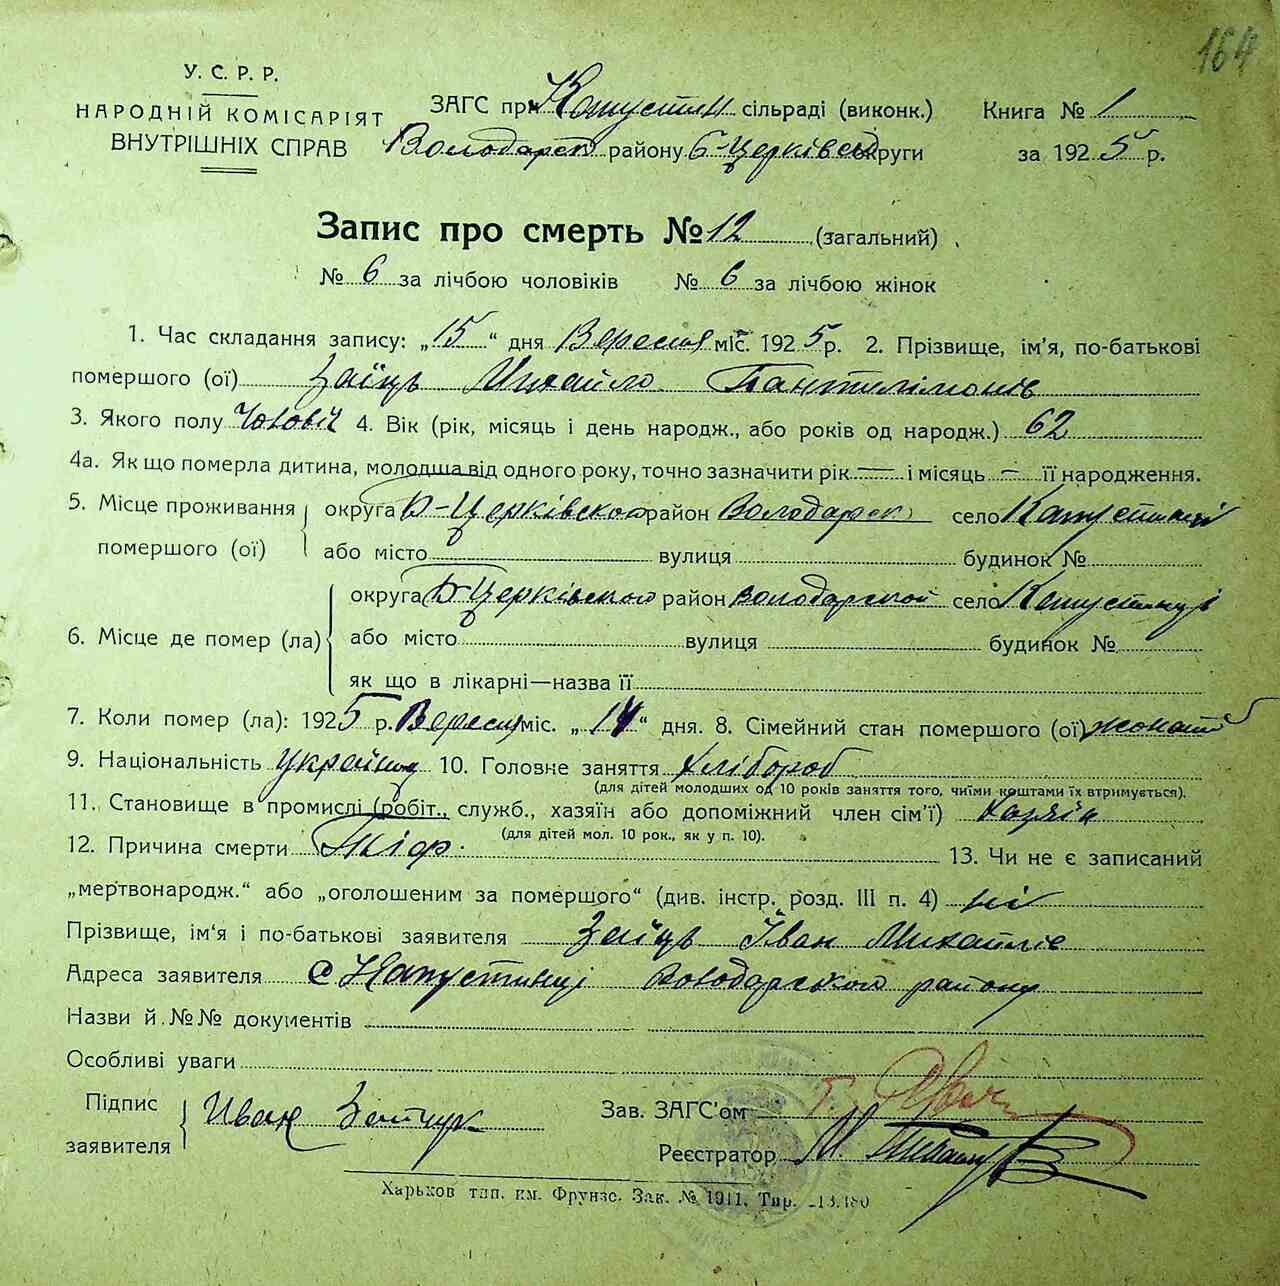 164
У. С. Р. Р.
НАРОДНІЙ КОМІСАРІЯТ
ВНУТРІШНІХ СПРАВ
ЗАГС при Капустин сільраді (виконк.)
Володарск району Б-Церківск округи
Книга № 1
за 1925 р.
Запис про смерть № 12 (загальний)
№ 6 за лічбою чоловіків № 6 за лічбою жінок
1. Час складання запису: „15“ дня Вересня міс. 1925 р. 2. Прізвище, ім'я, по-батькові
помершого (ої) Заїць Михайло Пантилімонів
3. Якого полу Чоловіч 4. Вік (рік, місяць і день народж., або років од народж.) 62
4а. Як що померла дитина, молодша від одного року, точно зазначити рік — і місяць — її народження.
5. Місце проживання помершого (ої) округа Б-Церківской район Володарск село Капустинці
або місто вулиця будинок №
6. Місце де помер (ла) округа Б-Церківского район Володарской село Капустинці
або місто вулиця будинок №
як що в лікарні—назва її
7. Коли помер (ла): 1925 р. Вересня міс. „14“ дня. 8. Сімейний стан помершого (ої) жонат
9. Національність Україн 10. Головне заняття Хлібороб
(для дітей молодших од 10 років заняття того, чиїми коштами їх втримується).
11. Становище в промислі (робіт., служб., хазяїн або допоміжний член сім'ї) Хазяін
(для дітей мол. 10 рок., як у п. 10).
12. Причина смерти 13. Чи не є записаний
„мертвонародж.“ або „оголошеним за помершого“ (див. інстр. розд. III п. 4) ні
Прізвище, ім'я і по-батькові заявителя Заїць Іван Михайлів
Адреса заявителя с Капустинці Володарського району
Назви й №№ документів
Особливі уваги
Підпис заявителя Иван Заичук
Зав. ЗАГС'ом
Реєстратор
Харьков тип. ім. Фрунзе. Зак. № 1911. Тир.